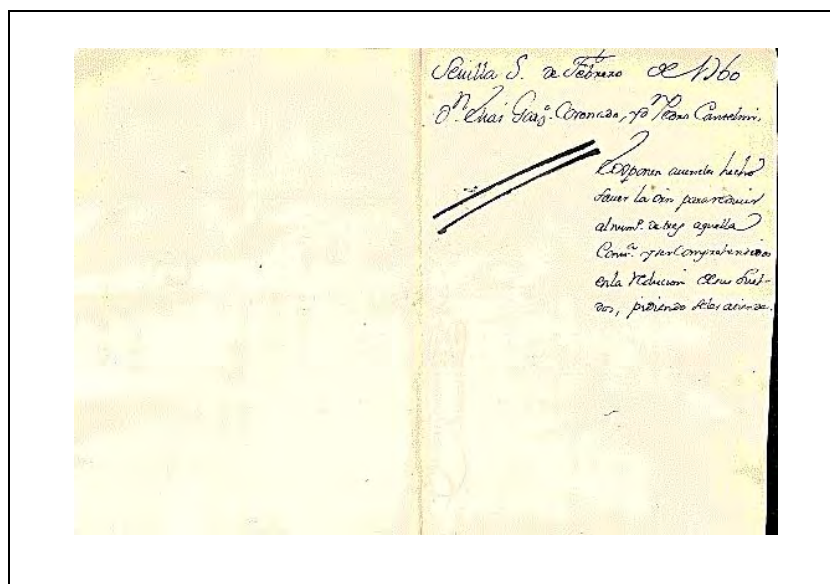 Sevilla 5. de Febrero de 1760
Dn. Elias Garª. Coronado, y Dn Pedro Cantelmi,
Exponen averseles hecho
saver la orn para reducir
al numº. de tres aquella
Comn. y ser Comprehendidos
en la reducion de sus Suel-
dos, pidiendo se les atienda.